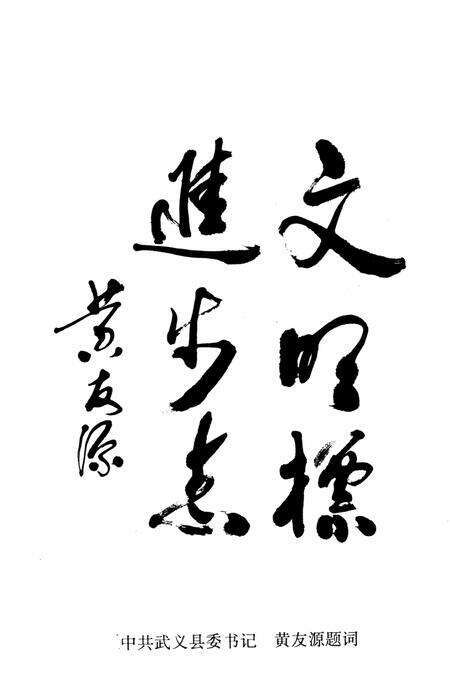 文明標
進步志
黄友源
中共武义县委书记　黄友源题词